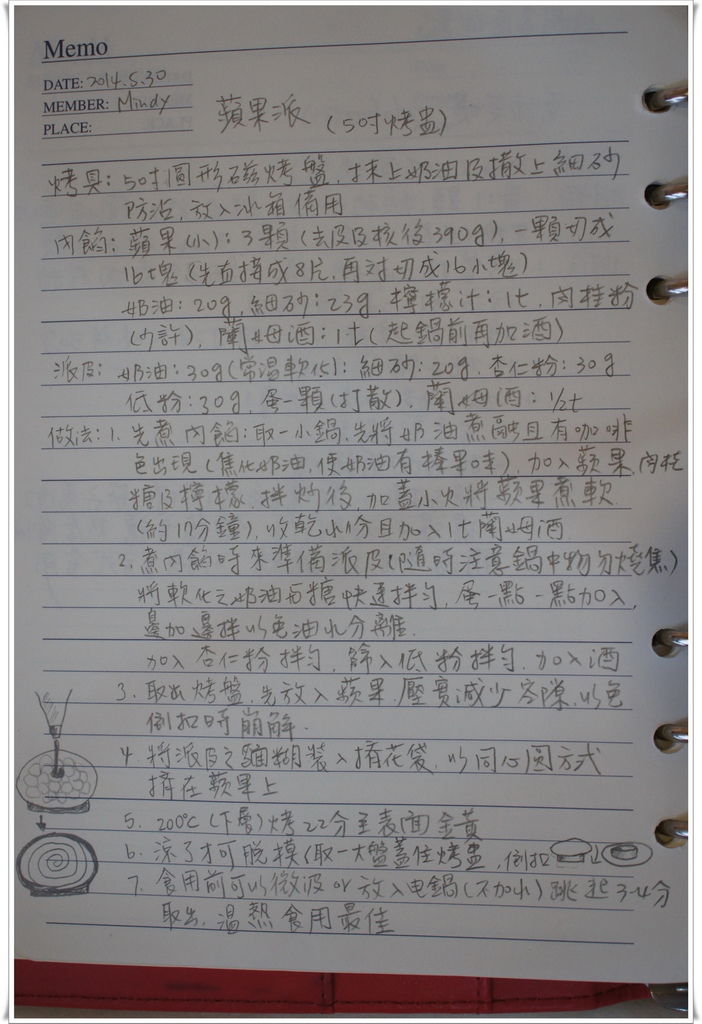 Memo
DATE: 2014.5.30
MEMBER: Mindy
PLACE:
蘋果派 (5吋烤盅)
烤具: 5吋圓形磁烤盤, 抹上奶油及撒上細砂
防沾, 放入冰箱備用
內餡: 蘋果(小): 3顆(去皮及核後390g), 一顆切成
16塊(先直接成8片, 再对切成16小塊)
奶油: 20g, 細砂: 23g, 檸檬汁: 1t, 肉桂粉
(少許), 蘭姆酒: 1t (起鍋前再加酒)
派皮: 奶油: 30g(常溫軟化): 細砂: 20g, 杏仁粉: 30g
低粉: 30g, 蛋一顆(打散), 蘭姆酒: 1/2t
做法: 1. 先煮內餡: 取一小鍋, 先將奶油煮融且有咖啡
色出現(焦化奶油, 使奶油有榛果味), 加入蘋果, 肉桂
糖及檸檬, 拌炒後, 加蓋小火將蘋果煮軟
(約17分鐘), 收乾水份且加入1t蘭姆酒
2. 煮內餡時來準備派皮(隨時注意鍋中物勿燒焦)
將軟化之奶油与糖快速拌勻, 蛋一點一點加入,
邊加邊拌以免油水分離.
加入杏仁粉拌勻, 篩入低粉拌勻, 加入酒
3. 取出烤盤, 先放入蘋果, 壓實減少空隙, 以免
倒扣時崩解.
4. 將派皮之麵糊裝入擠花袋, 以同心圓方式
擠在蘋果上
5. 200℃(下層)烤22分至表面金黃
6. 涼了才可脫模(取一大盤蓋住烤盅, 倒扣
7. 食用前可以微波 or 放入电鍋(不加水)跳起3-4分
取出, 溫熱食用最佳